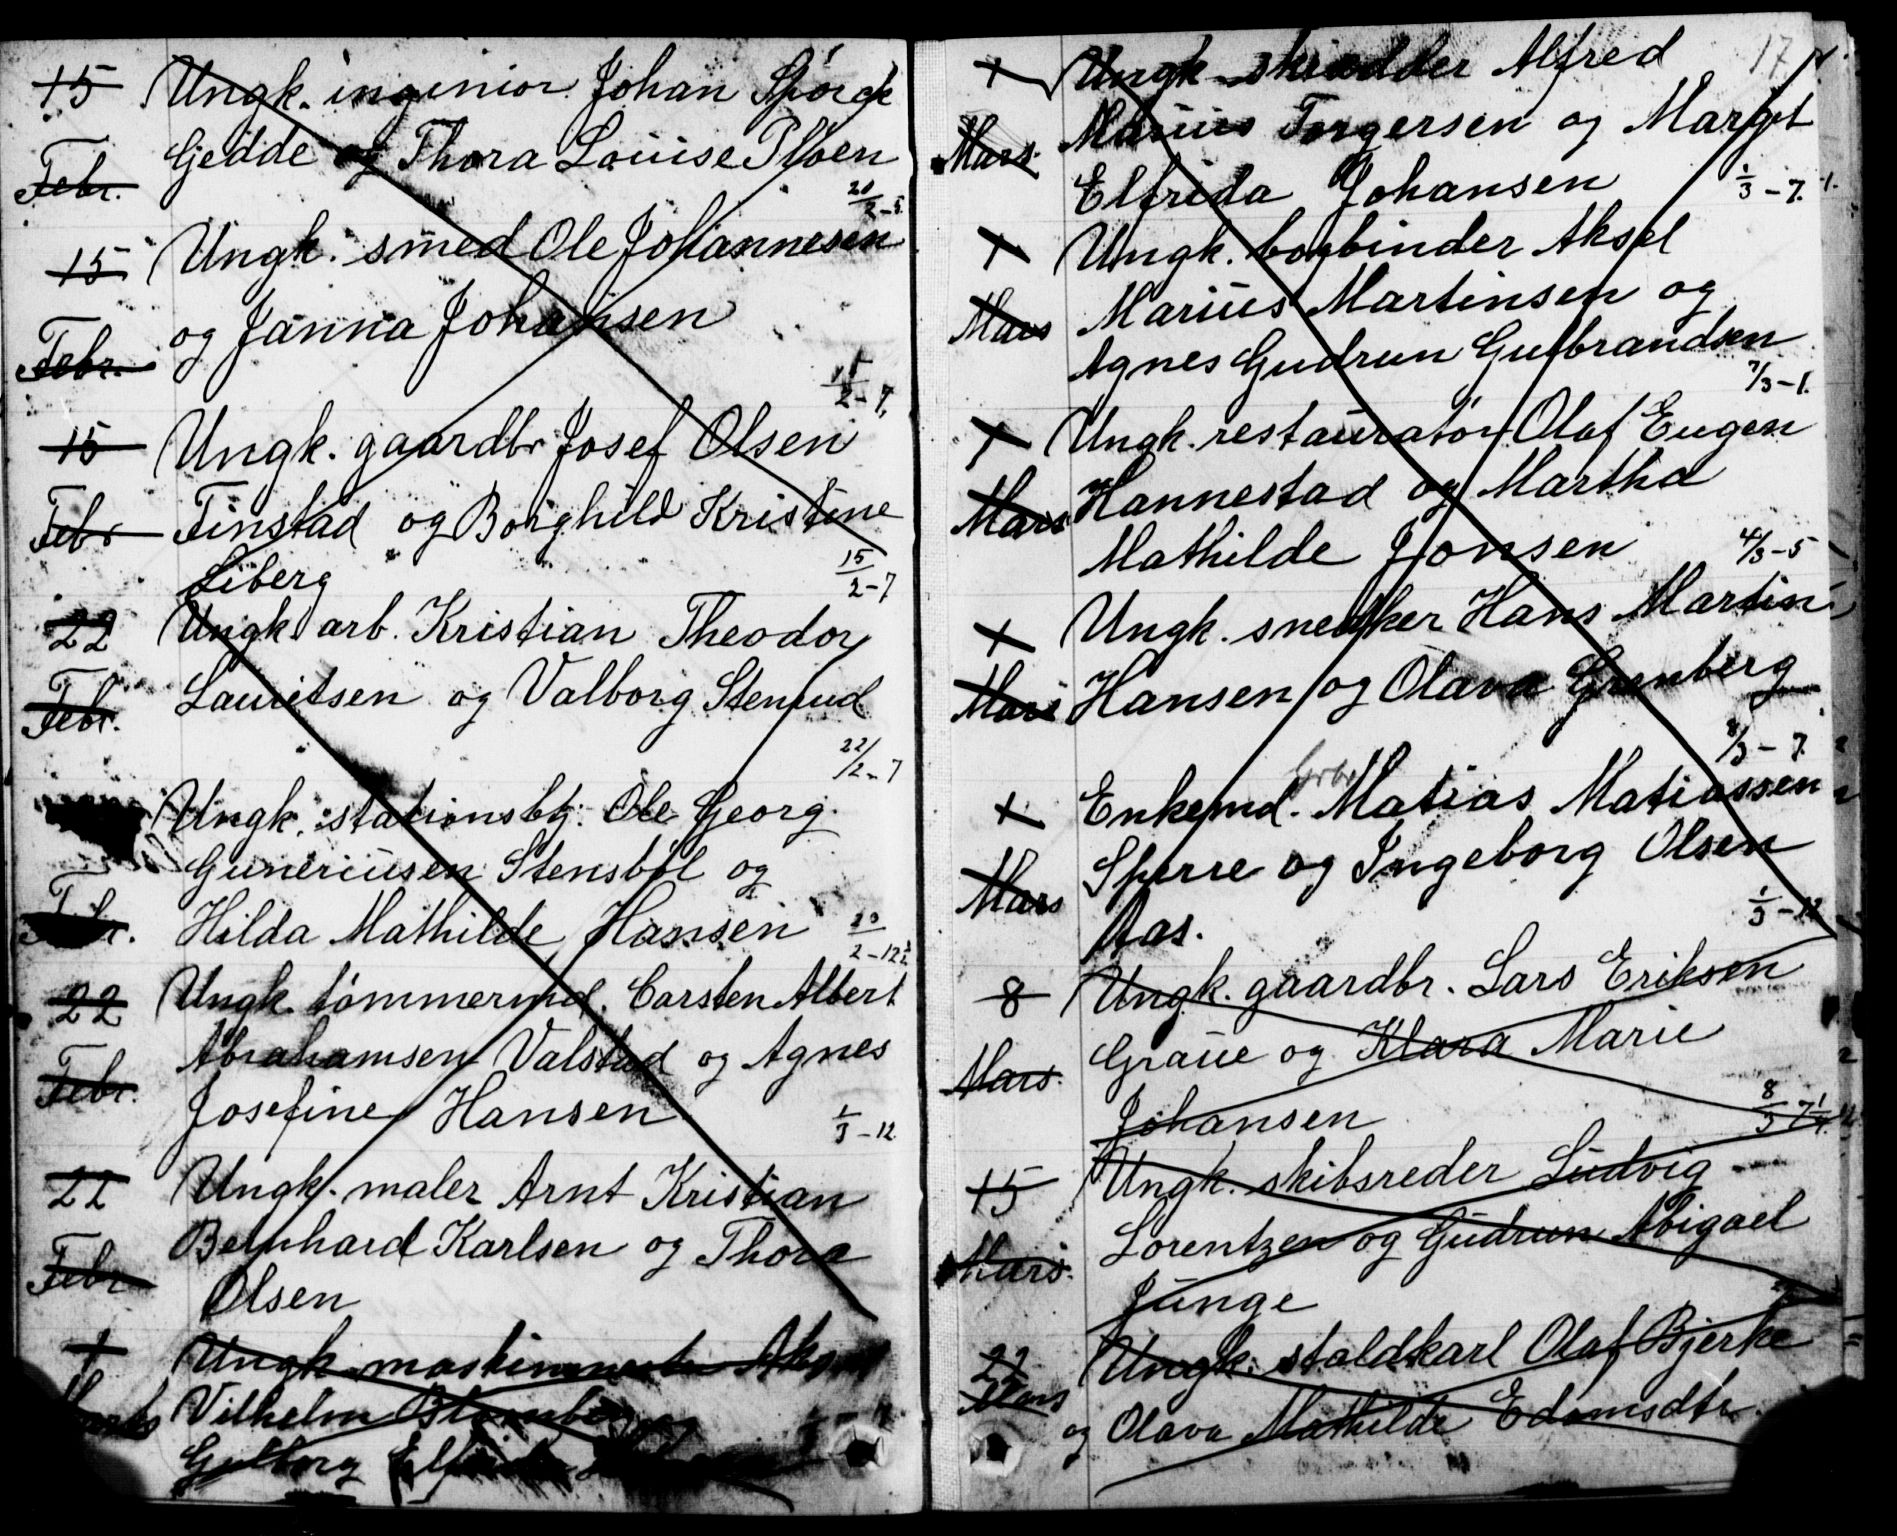 15 Ungk. ingeniør Johan Spörck
Febr. Gedde og Thora Louise Ploen
20/2 - 5
15 Ungk. smed Ole Johannesen
Febr. og Janna Johansen
15/2 - 7
15 Ungk. gaardbr Josef Olsen
Febr Finstad og Borghild Kristine
Liberg 15/2 - 7
22 Ungk arb. Kristian Theodor
Febr. Lauritsen og Valborg Stenrud
22/2 - 7
Ungk. stationsbtj. Ole Georg
Guneriusen Stensböl og
Febr. Hilda Mathilde Hansen
22 Ungk. tömmermd. Carsten Albert
Febr. Abrahamsen Valstad og Agnes
Josefine Hansen 1/3 - 12
22 Ungk. maler Arnt Kristian
Febr Bernhard Karlsen og Thora
Olsen
1 Ungk. Aksel
Vilhelm
17
1 Ungk. skrædder Alfred
Mars. Marius Torgersen og Margit
Elfrida Johansen 1/3 - 7
1 Ungk. bogbinder Aksel
Mars Marius Martinsen og
Agnes Gudrun Gulbrandsen
7/3 - 1.
1 Ungk. restauratör Olaf Eugen
Mars Hannestad og Martha
Mathilde Jonsen 4/3 - 5
1 Ungk. snedker Hans Martin
Mars Hansen og Olava Grønberg
1 Enkemd. Matias Matiassen
Mars Sperre og Ingeborg Olsen
Aas. 1/3 - 12
8 Ungk. gaardbr. Lars Eriksen
Mars. Graue og Klara Marie
Johansen 8/3 7 1/4
15 Ungk. skibsreder Ludvig
Mars. Lorentzen og Gudrun Abigael
Junge
22 Ungk. staldkarl Olaf Bjerke
Mars og Olava Mathilde Edamsdtr.